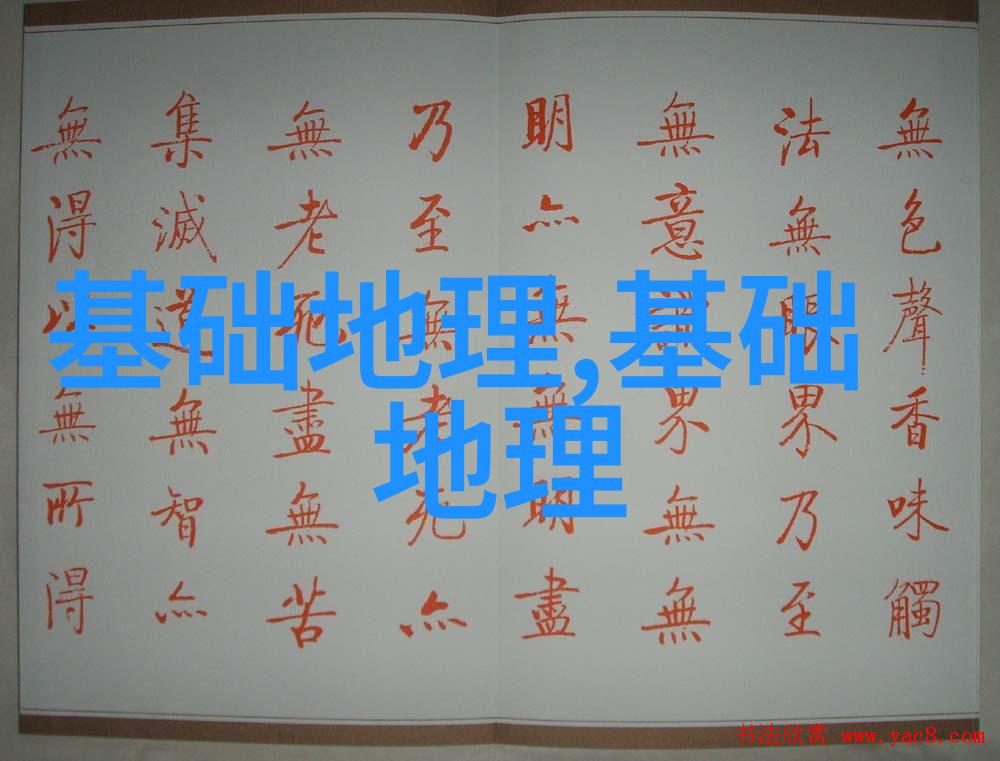 無色聲香味觸
法無眼界乃至
無意識界無無
明亦無無明盡
乃至無老死亦
無老死盡無苦
集滅道無智亦
無得以無所得
基础地理,基础
地理
书法欣赏 www.yac8.com